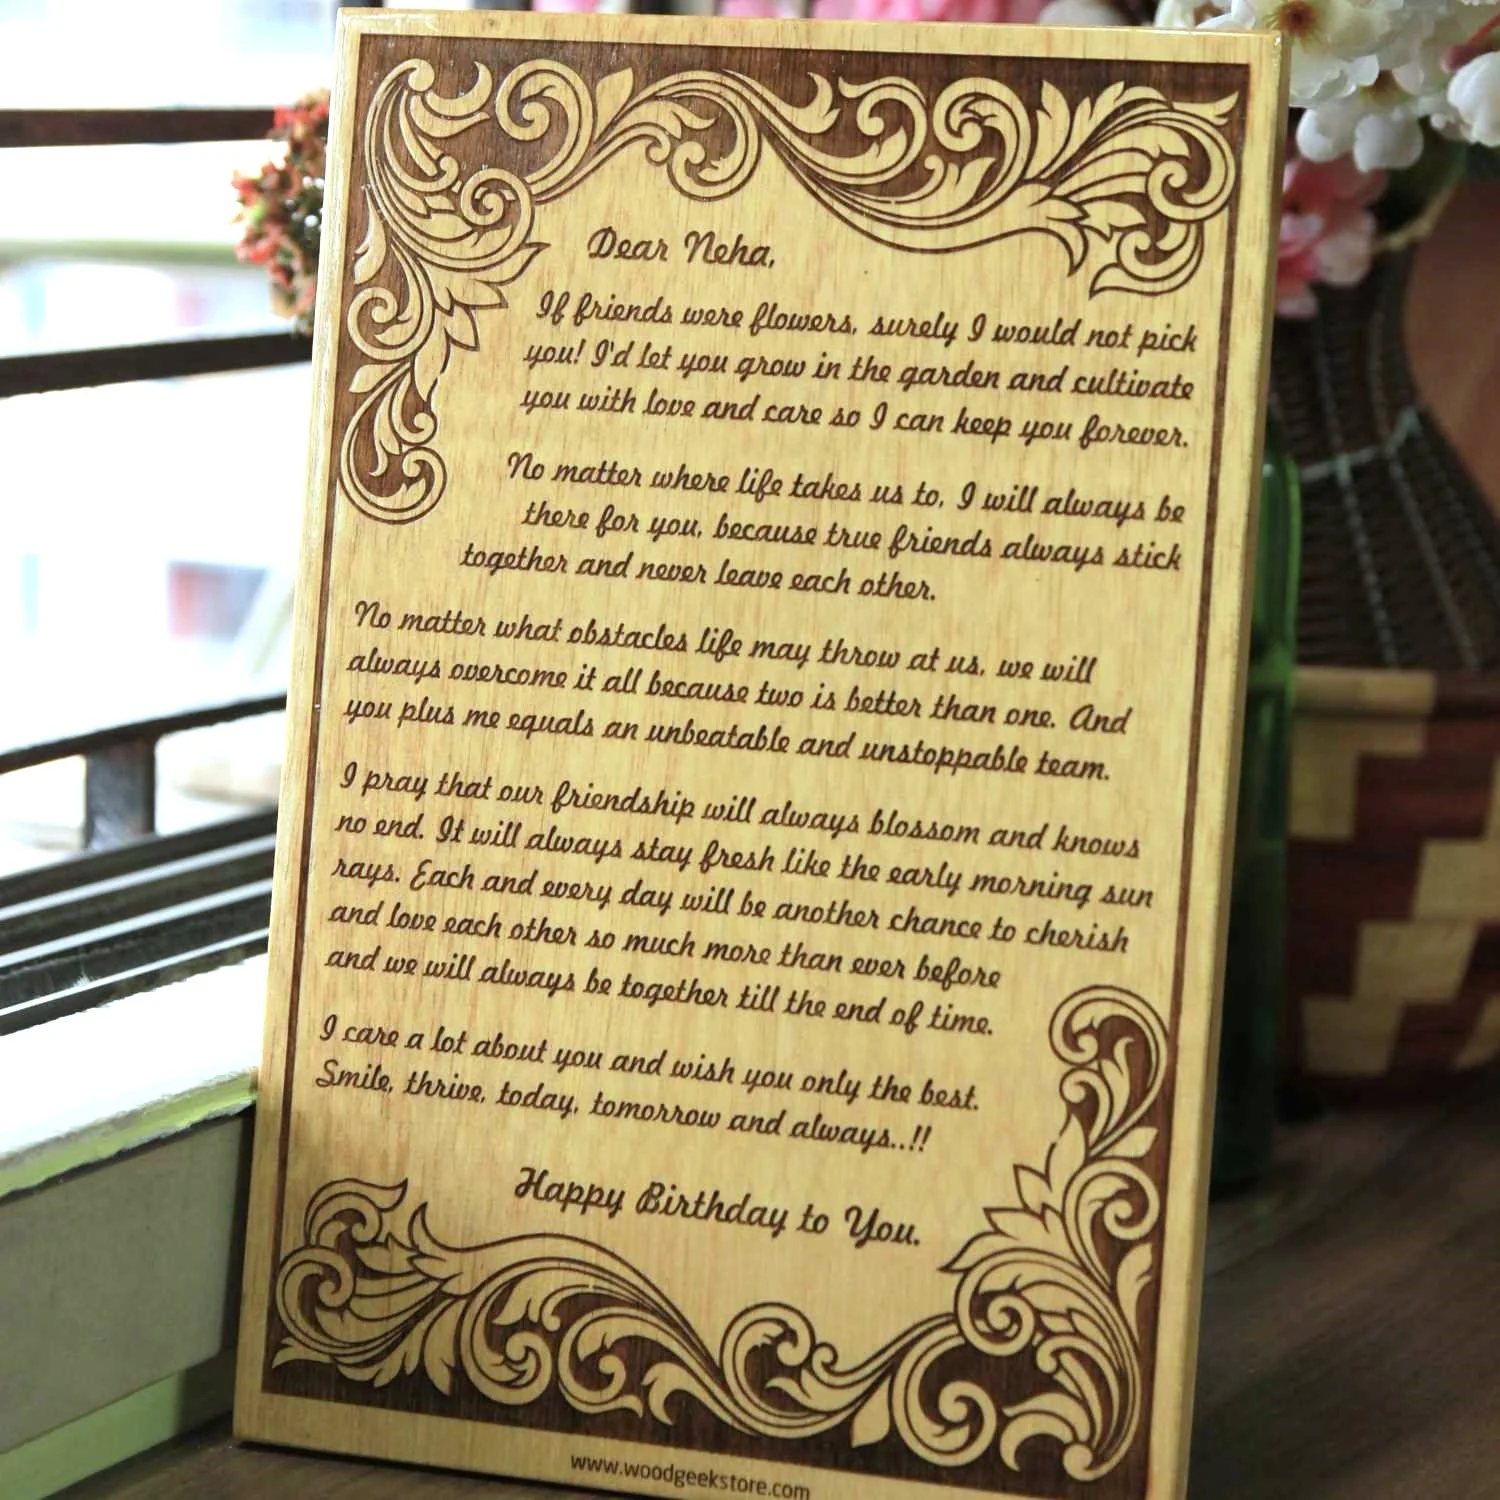 Dear Neha,
If friends were flowers, surely I would not pick
you! I'd let you grow in the garden and cultivate
you with love and care so I can keep you forever.
No matter where life takes us to, I will always be
there for you, because true friends always stick
together and never leave each other.
No matter what obstacles life may throw at us, we will
always overcome it all because two is better than one. And
you plus me equals an unbeatable and unstoppable team.
I pray that our friendship will always blossom and knows
no end. It will always stay fresh like the early morning sun
rays. Each and every day will be another chance to cherish
and love each other so much more than ever before
and we will always be together till the end of time.
I care a lot about you and wish you only the best.
Smile, thrive, today, tomorrow and always..!!
Happy Birthday to You.
www.woodgeekstore.com